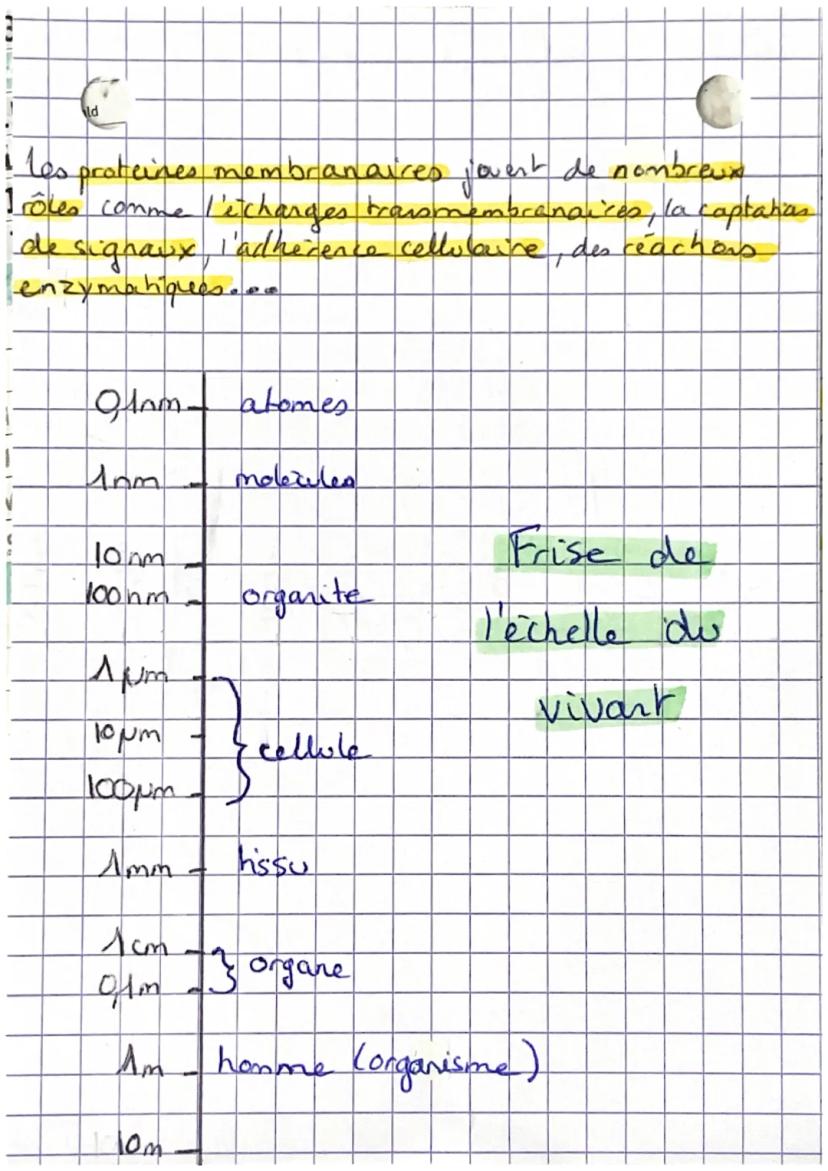 les proteines membranaires jouent de nombreux
rôles comme l'échanges transmembranaires, la captation
de signaux, l'adhérence cellulaire, des réactions
enzymatiques...
0,1nm atomes
1nm molécules
10nm
100nm organite
1µm
10µm cellule
100µm
1mm tissu
1cm organe
0,1m
1m homme (organisme)
10m
Frise de
l'échelle du
vivant